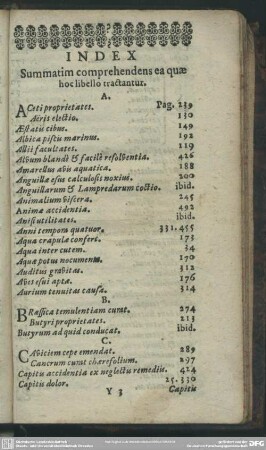 INDEX
Summatim comprehendens ea quæ
hoc libello tractantur.
A.
Aceti proprietates. Pag. 239
Aëris electio. 130
Æstatis cibus. 149
Albica piscis marinus. 192
Allii facultates. 119
Alvum blandè & facilè resolventia. 426
Amarellus avis aquatica. 188
Anguillæ esus calculosis noxius. 200
Anguillarum & Lampredarum coctio. ibid.
Animalium viscera. 245
Animæ accidentia. 492
Anisi utilitates. ibid.
Anni tempora quatuor. 331. 455
Aqua crapulæ confert. 173
Aqua inter cutem. 34
Aquæ potus nocumenta. 170
Auditus gravitas. 312
Aves esui aptæ. 176
Aurium tenuitas causa. 314
B.
Brassica temulentiam curat. 274
Butyri proprietates. 213
Butyrum ad quid conducat. ibid.
C.
Caviciem cepe emendat. 289
Cancrum curat chærefolium. 297
Capitis accidentia ex neglectu remediis. 414
Capitis dolor. 25. 330
Y 3 Capitis